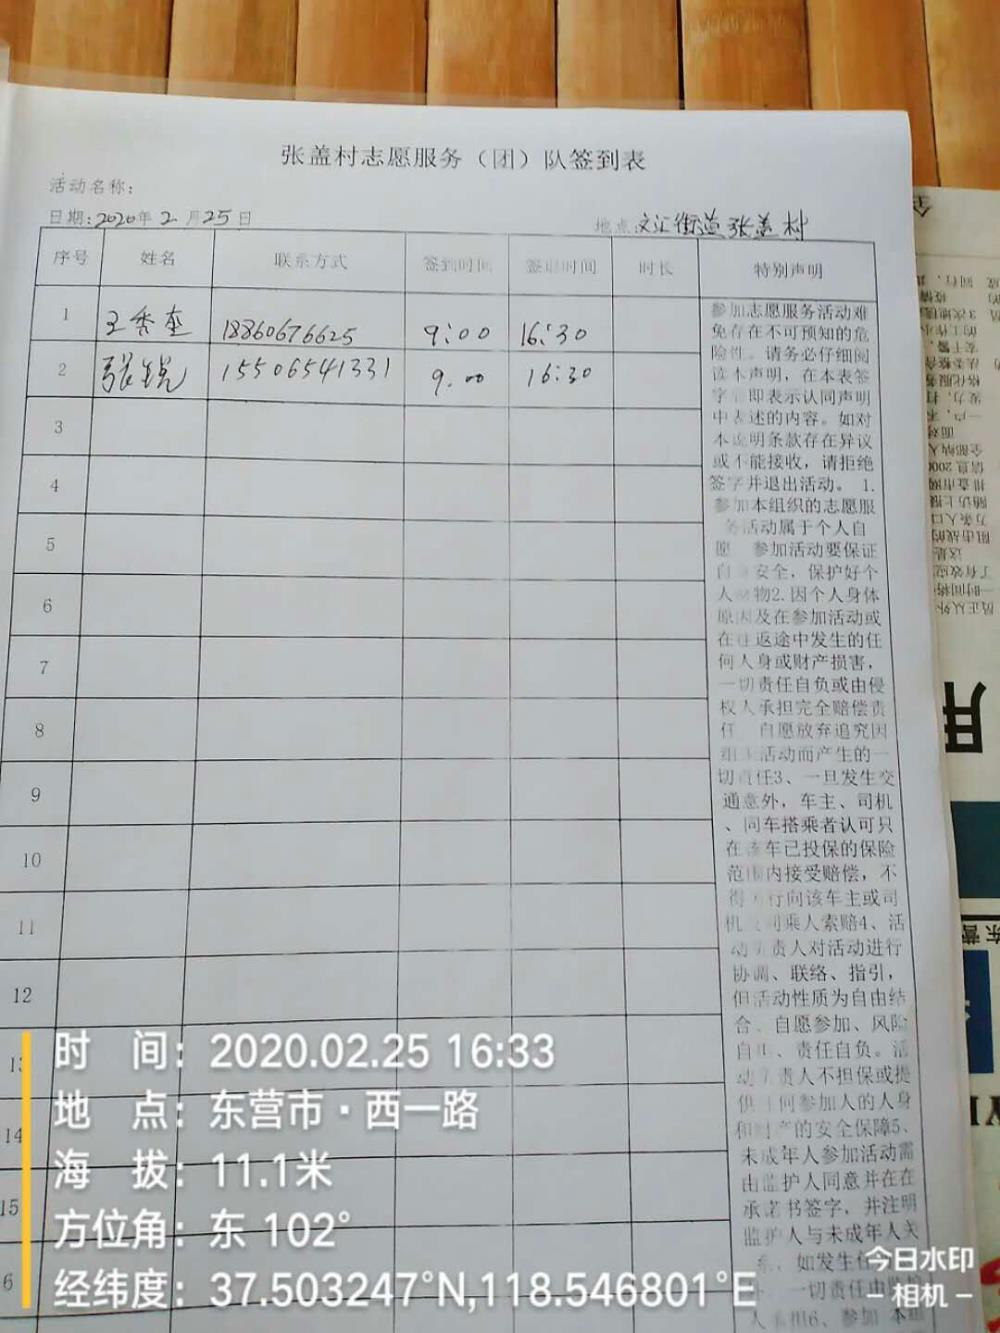 张盖村志愿服务（团）队签到表
活动名称：
日期：2020年2月25日
地点：文汇街道张盖村
序号 姓名 联系方式 签到时间 签退时间 时长 特别声明
1 王秀奎 18860676625 9:00 16:30
2 张锐 15506541331 9.00 16:30
3
4
5
6
7
8
9
10
11
12
13
14
15
6
参加志愿服务活动难
免存在不可预知的危
险性。请务必仔细阅
读本声明，在本表签
字后即表示认同声明
中表述的内容。如对
本说明条款存在异议
或不能接收，请拒绝
签字并退出活动。 1.
参加本组织的志愿服
务活动属于个人自
愿 参加活动要保证
自身安全，保护好个
人财物2.因个人身体
原因及在参加活动或
在往返途中发生的任
何人身或财产损害，
一切责任自负或由侵
权人承担完全赔偿责
任 自愿放弃追究因
组织活动而产生的一
切责任3、一旦发生交
通意外，车主、司机
、同车搭乘者认可只
在该车已投保的保险
范围内接受赔偿，不
得另行向该车主或司
机及同乘人索赔4、活
动负责人对活动进行
协调、联络、指引，
但活动性质为自由结
合、自愿参加、风险
自担、责任自负。活
动负责人不担保或提
供任何参加人的人身
和财产的安全保障5、
未成年人参加活动需
由监护人同意并在在
承诺书签字，并注明
监护人与未成年人关
系。如发生任
一切责任由监护
人承担6、参加 本组
时 间：2020.02.25 16:33
地 点：东营市·西一路
海 拔：11.1米
方位角：东 102°
经纬度：37.503247°N,118.546801°E
今日水印
－相机－